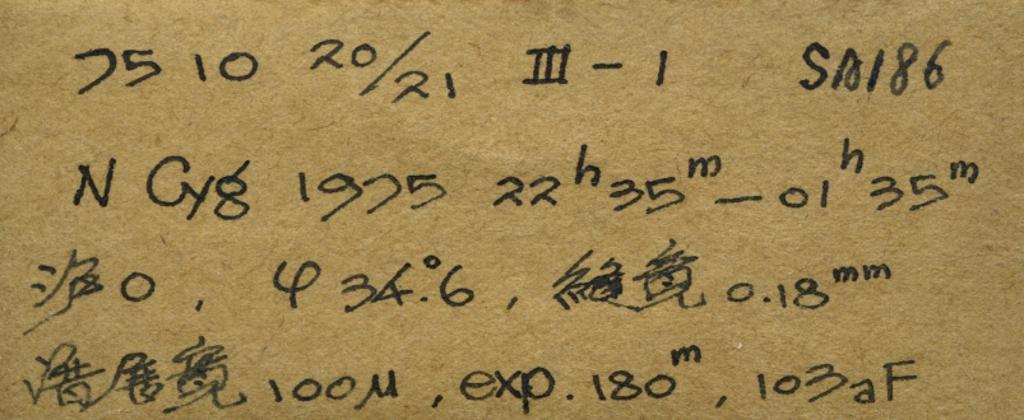 75 10 20/21 III - 1 SA186
N Cyg 1975 22h35m - 01h35m
沪0, φ 34°.6, 缝宽 0.18mm
谱展宽 100μ, exp. 180m, 103aF